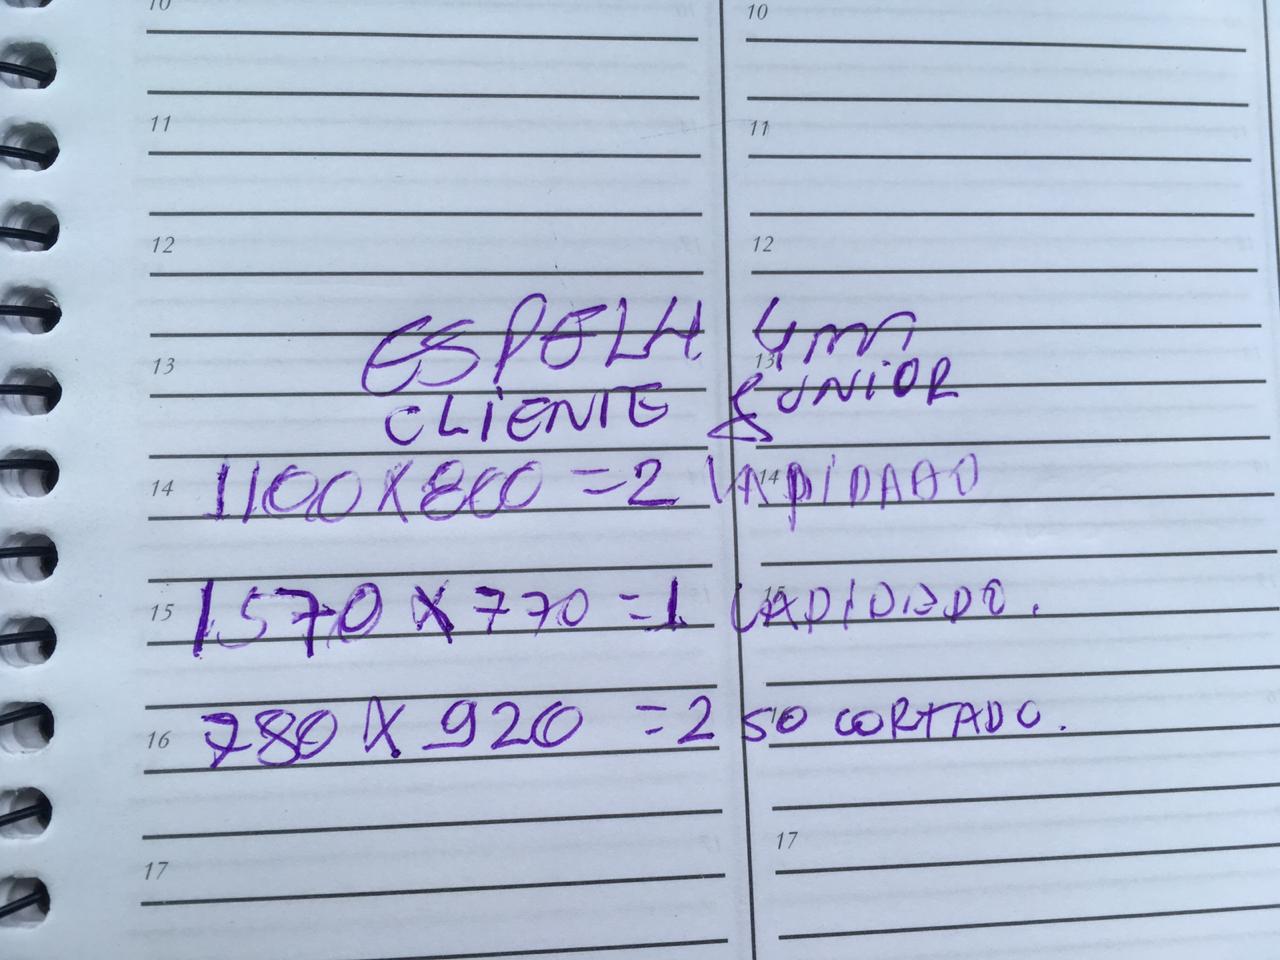 10 10
11 11
12 12
ESPELH 4mm
13 13
CLIENTE JUNIOR
14 1100X800 =2 14 LAPIDADO
15 1570 X 770 =1 15 LAPIDADO.
16 780 X 920 =2 SO CORTADO.
17 17